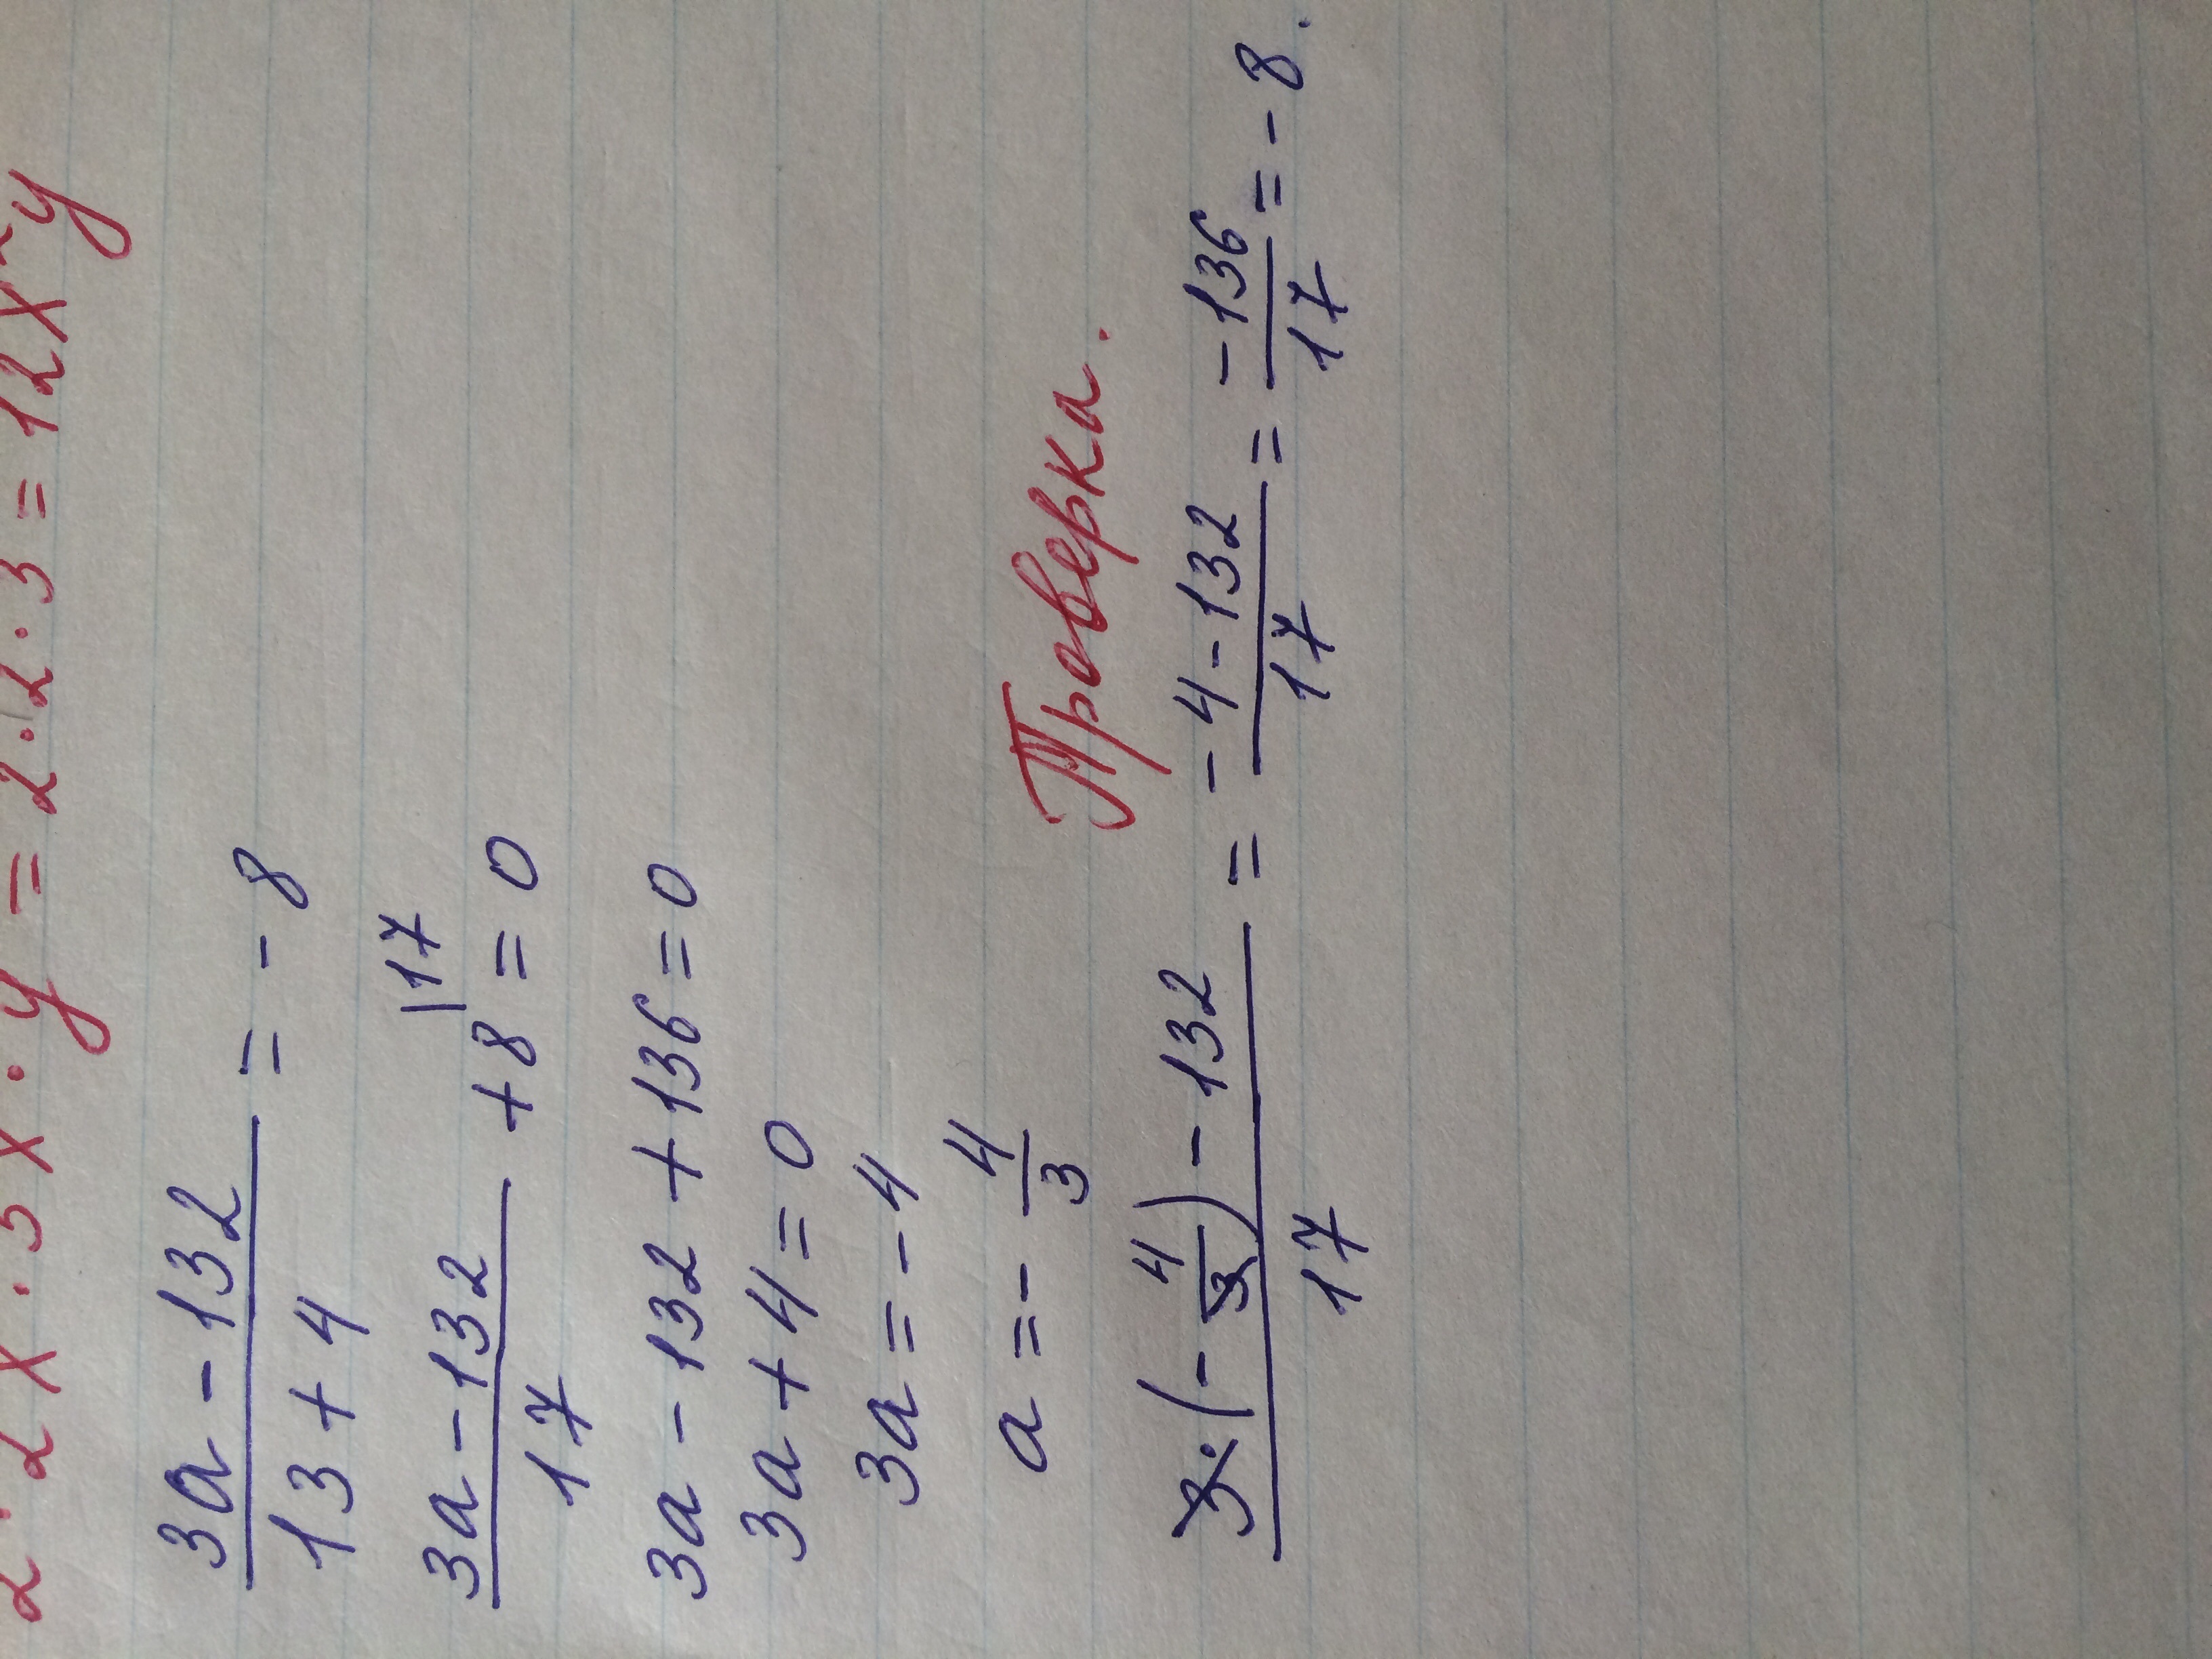 2·2x·3x·y = 2·2·3 = 12x²y
3a - 132 / 13 + 4 = - 8
3a - 132 / 17 + 8 |17 = 0
3a - 132 + 136 = 0
3a + 4 = 0
3a = - 4
a = - 4/3
Проверка.
3·(- 4/3) - 132 / 17 = - 4 - 132 / 17 = - 136 / 17 = - 8.